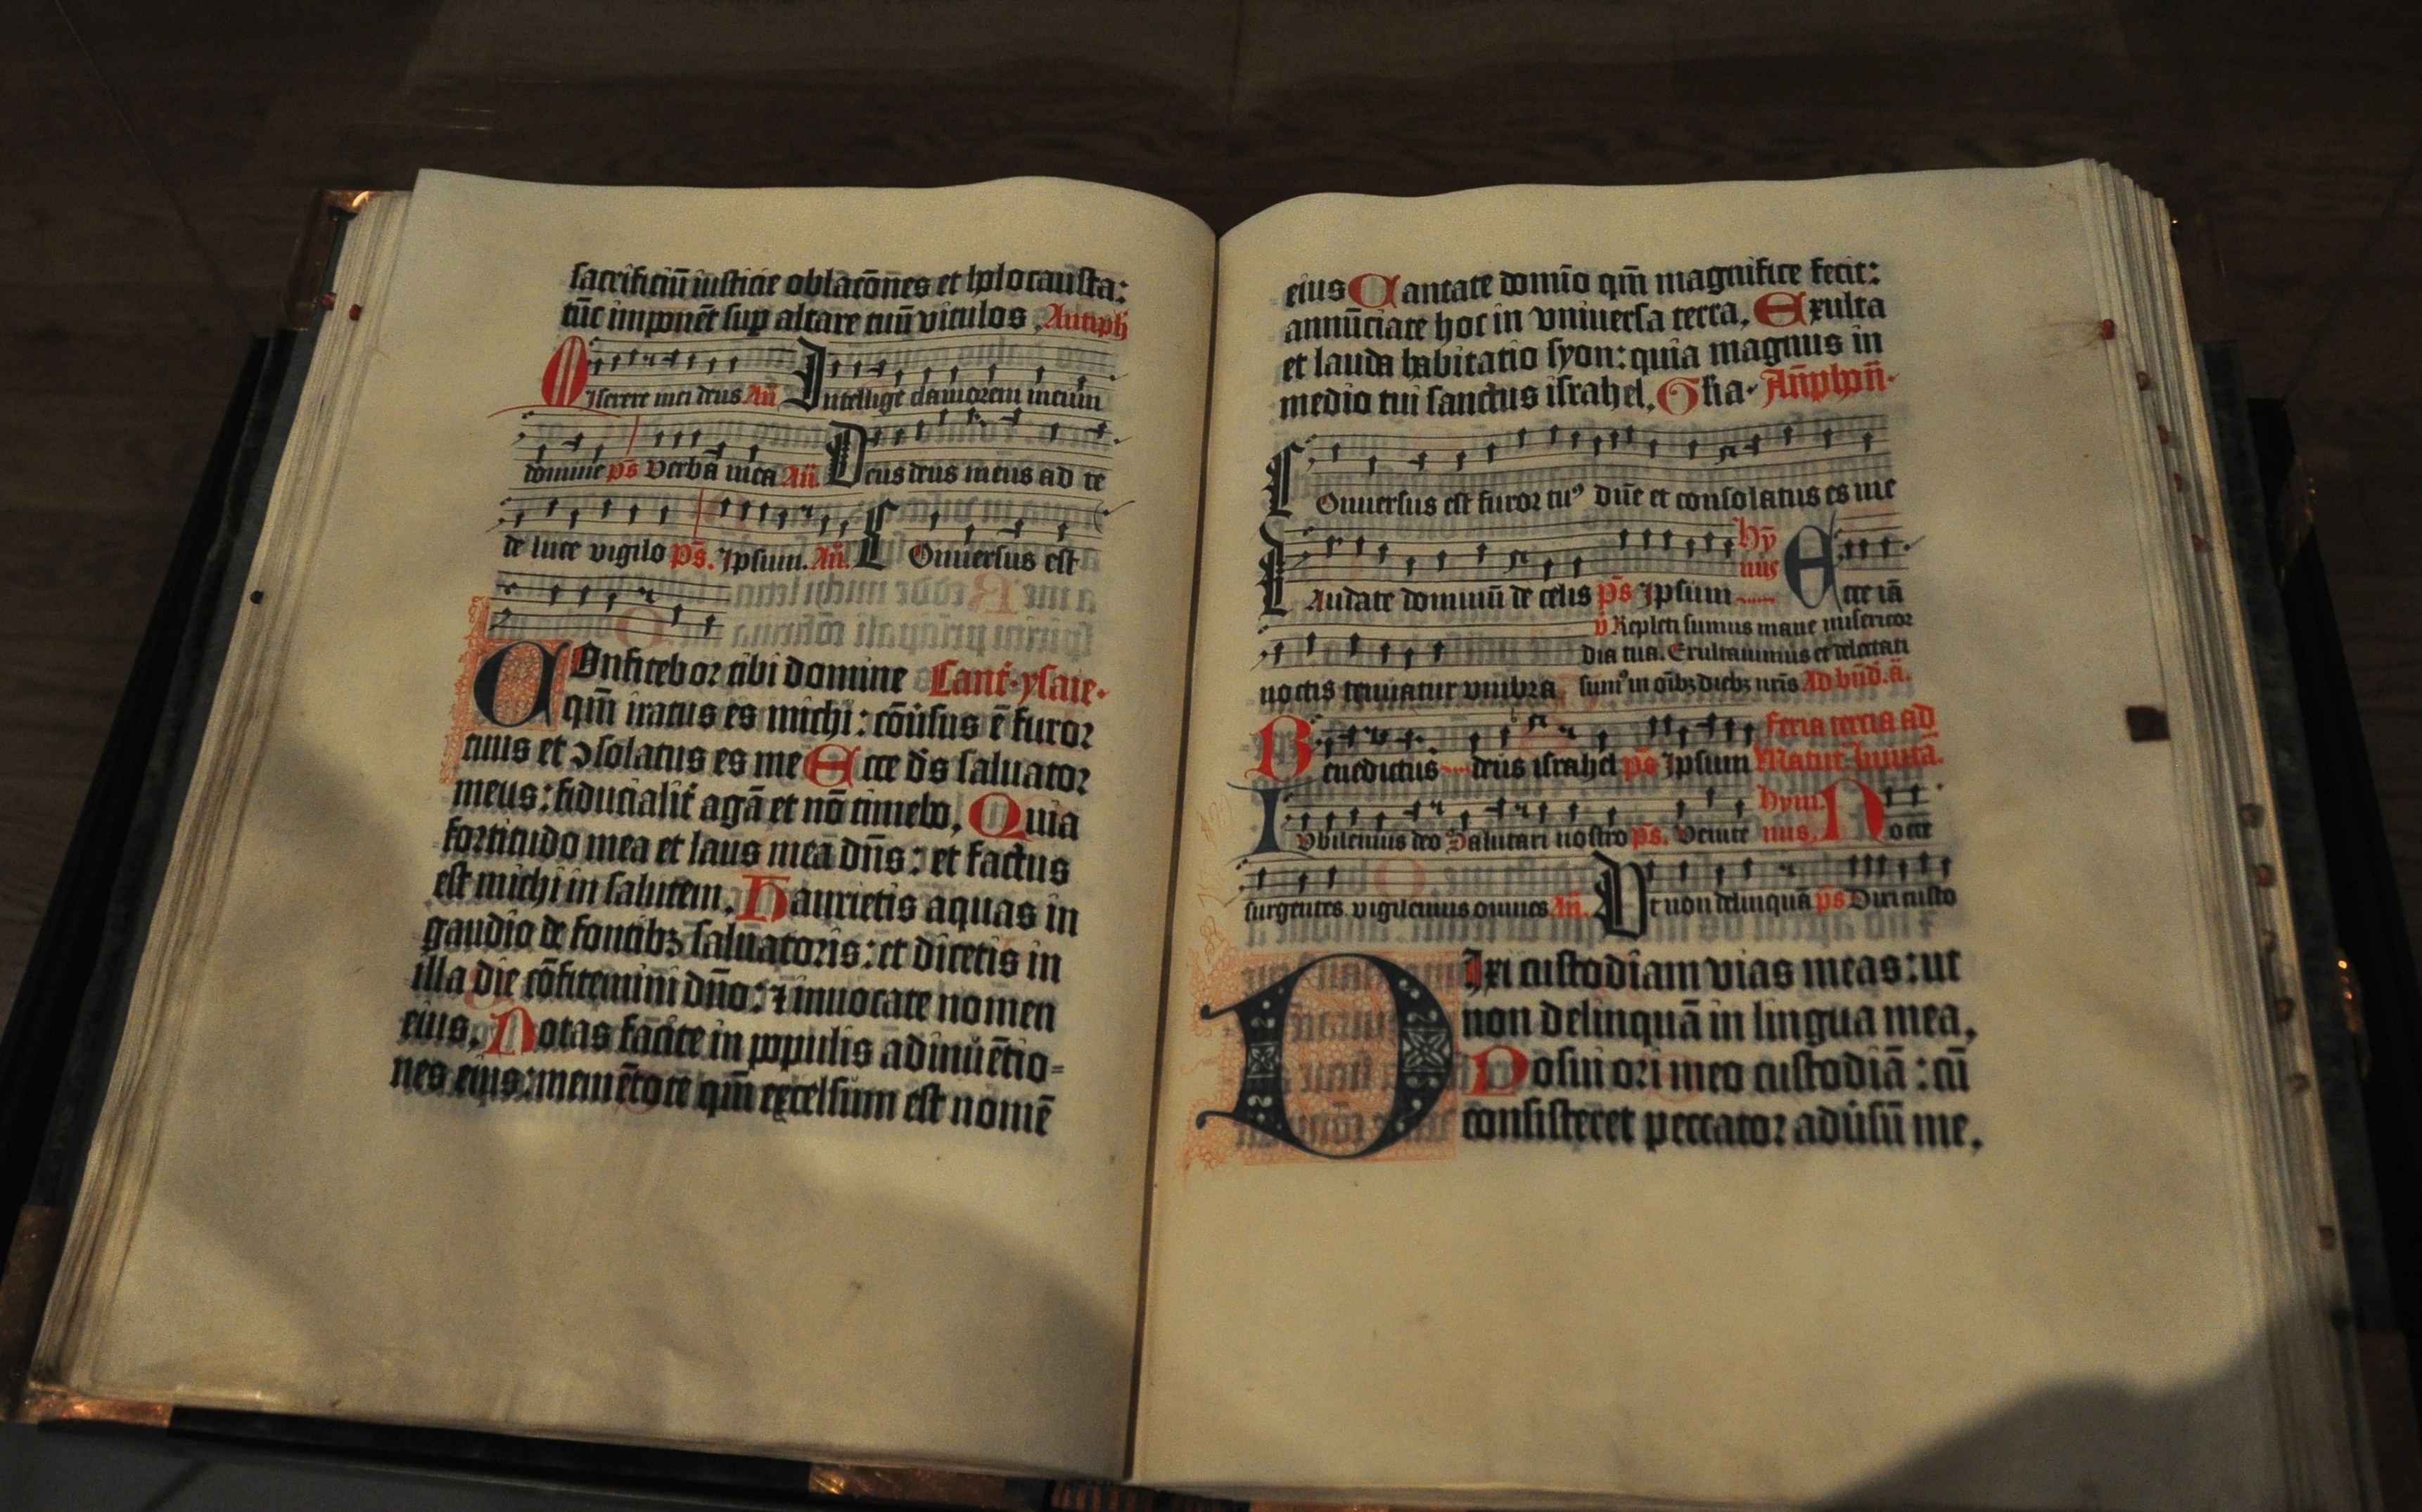 sacrificiū iusticie oblacōnes et holocausta:
tūc imponēt sup altare tuū vitulos. Antiph
Miserere mei deus Añ Intellige clamorem meum
domine ps̄ Verba mea Añ. Deus deus meus ad te
de luce vigilo ps̄. Ipsum. Añ. Conuersus est
COnfitebor tibi domine Cant. ysaie.
qm̄ iratus es michi: cōuſus ē furor
tuus et ɔsolatus es me Ecce ds̄ saluator
meus: fiducialiť agā et nō timebo. Quia
fortitudo mea et laus mea dn̄s: et factus
est michi in salutem. Haurietis aquas in
gaudio de fontibꝫ saluatoris: et dicetis in
illa die cōfitemini dn̄o: ⁊ inuocate nomen
eius. Notas facite in populis adinuētio=
nes eius: memētote qm̄ excelsum est nomē
eius Cantate domīo qm̄ magnifice fecit:
annūciate hoc in vniuersa terra. Exulta
et lauda habitatio syon: quia magnus in
medio tui sanctus israhel. Glia. Añphoñ.
Conuersus est furor tuꝰ dn̄e et consolatus es me
hȳ
nus
LAudate dominū de celis ps̄ Ipsum Ecce iā
v Repleti sumus mane misericor
dia tua. Exultauimus et delectati
noctis tenuatur vmbra. sumꝰ in oībꝫ diebꝫ nr̄is Ad bn̄d. ā.
feria tercia ad
Benedictus deus israhel ps̄ Ipsum Matuť. Inuitā.
hym
Ivbilemus deo Salutari nostro ps̄. Venite nus. Nocte
surgentes vigilemus omnes Añ. Vt non delinquā ps̄ Dixi custo
DIxi custodiam vias meas: ut
non delinquā in lingua mea.
Posui ori meo custodiā: cū
consisteret peccator aduſū me.